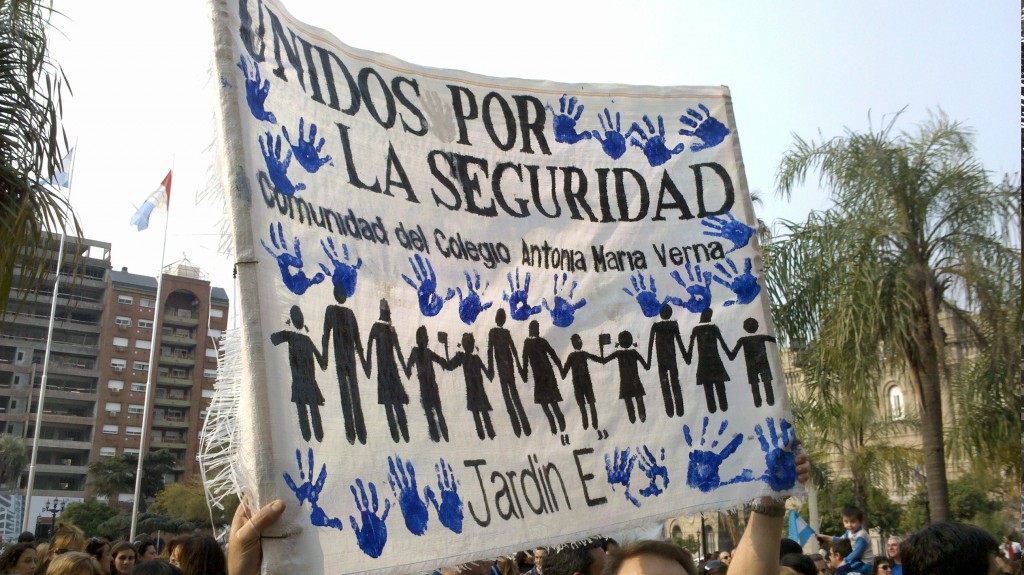 UNIDOS POR
LA SEGURIDAD
Comunidad del Colegio Antonia Maria Verna
Jardin "E"